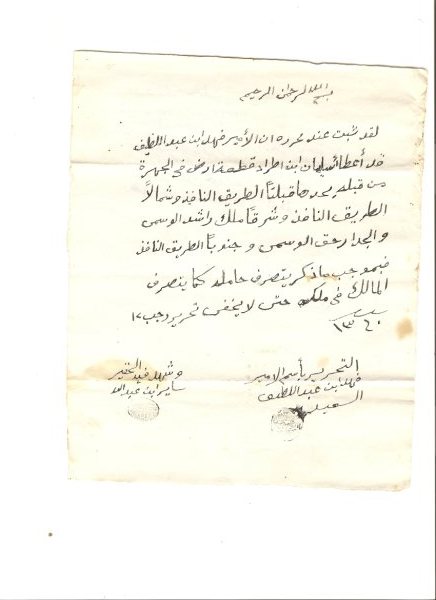 بسم الله الرحمن الرحيم
لقد ثبت عند محرره ان الأمير فهد ابن عبد اللطيف
قد أعطا سليمان ابن اطراد قطعة ارض في الجهرة
من قبله يحدها قبلتاً الطريق النافذ وشمالاً
الطريق النافذ وشرقاً ملك راشد الوسمي
والجدار حق الوسمي وجنوباً الطريق النافذ
فبموجب ماذكر يتصرف حامله كما يتصرف
المالك في ملكه حتى لا يخفى تحرير رجب ١٧
١٣٦٠
التحرير بأسم الأمير
فهد ابن عبد اللطيف
وشهد فيه
ساير ابن عبد الله